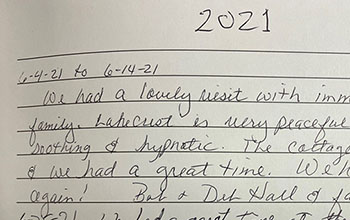 2021
6-4-21 to 6-14-21
We had a lovely visit with imm
family. Lakecrest is very peaceful
soothing & hypnotic. The cottage
& we had a great time. We h
again! Bob & Deb Hall & fa